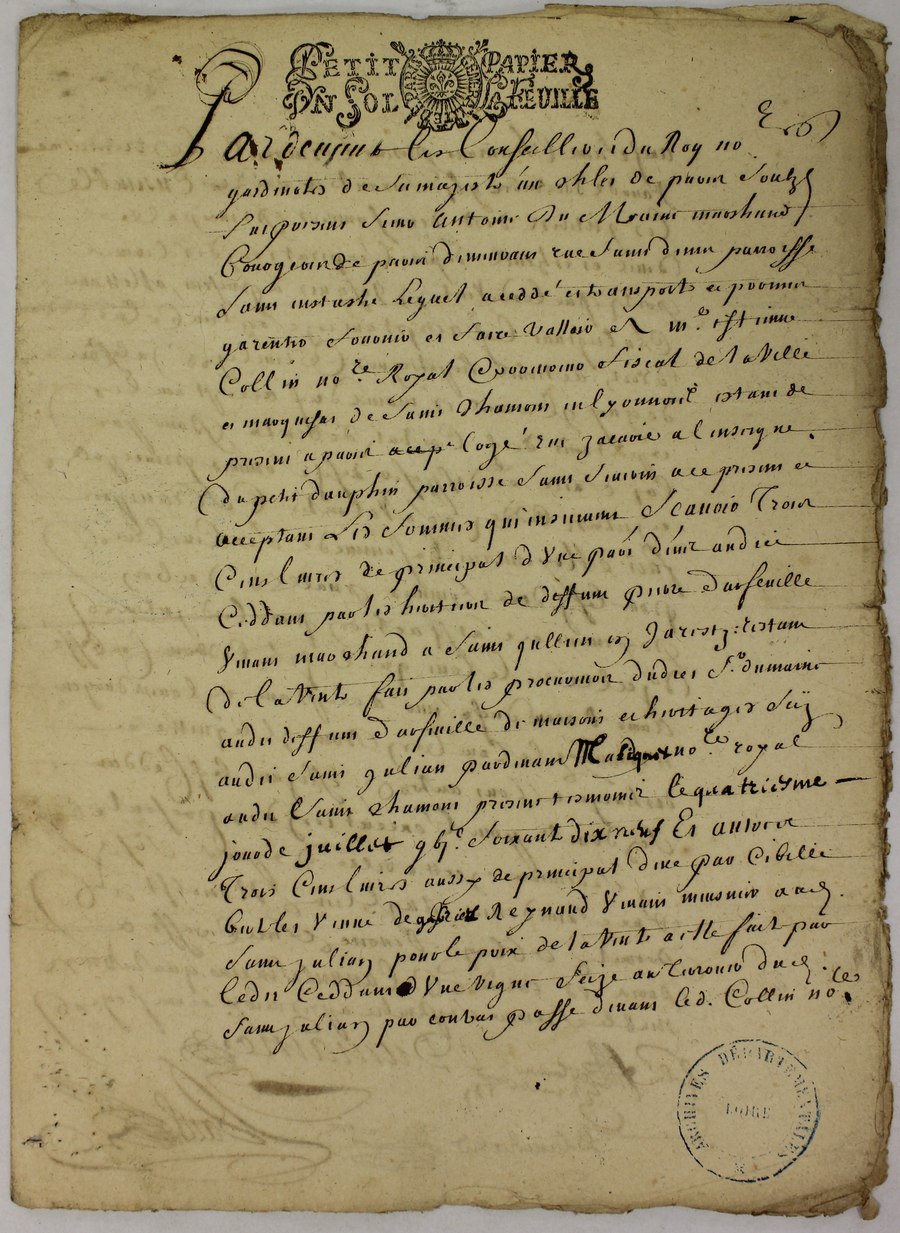 PETIT PAPIER
UN SOL LA FEUILLE
Pardevant les Conseillers du Roy no
gardinotes de sa majesté au chlet de paris soubz
fut present sieur Antoine Du Maine marchand
bourgeois de paris demeurant rue saint denis parroisse
saint eustache Lequel a ceddé et transporté et promis
garentir fournir et faire valloir a Me. estienne
Collin nore Royal Procureur fiscal de la Ville
et marquisat de saint chamond en lyonnois estant de
present a paris logé rue
du petit dauphin parroisse saint a ce present et
acceptant Les sommes qui ensuivent scavoir Trois
Cens livres de principal d'une part deue audit
Ceddant par les heritiers de deffunt pierre Darfeuille
vivant marchand a saint jullien en Jarestz restant
de la vente fait par les procureur dudit Sr. dumaine
audit deffunt Darfeuille de maisons et heritages sciz
audit saint jullian pardevant nore royal
audit saint chamond present tesmoins le quatriesme
jour de juillet gbjc. soixant dix neuf Et autres
Trois Cens livres aussy de principal deue par Cibille
vivant musnier aud.
saint julian pour le prix de la vente a elle fait par
ledit Ceddant d'une vigne size au terroir dud.
saint julian par contrat passé devant led. Collin nore.
ARCHIVES DÉPARTEMENTALES
LOIRE